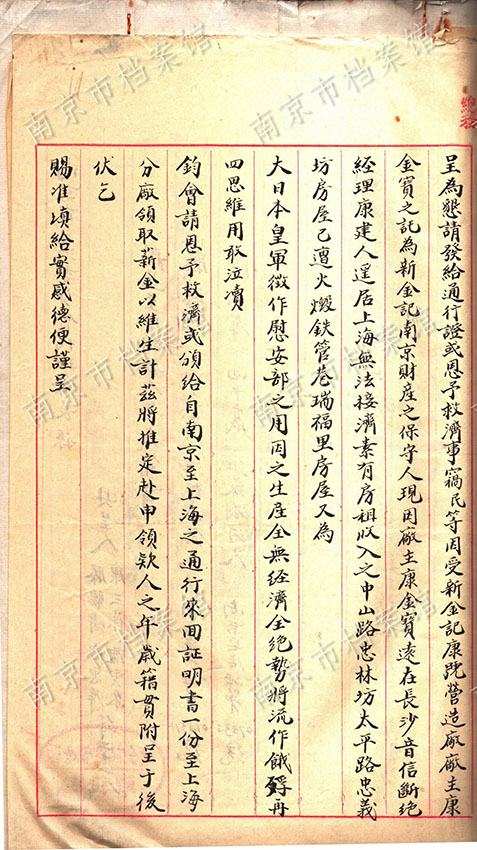 呈為懇請發給通行證或恩予救濟事竊民等因受新金記康號營造廠廠主康
金寶之託為新金記南京財產之保守人現因廠主康金寶遠在長沙音信斷絕
經理康建人遥居上海無法接濟素有房租收入之中山路忠林坊太平路忠義
坊房屋已遭火燬鉄管巷瑞福里房屋又為
大日本皇軍徵作慰安部之用因之生居全無經濟全絕勢將流作餓殍再
四思維用敢泣凟
鈞會請恩予救濟或頒給自南京至上海之通行來回証明書一份至上海
分廠領取薪金以維生計茲將推定赴申領欵人之年歲籍貫附呈于後
伏乞
賜准填給實感德便謹呈
南京市档案馆
南京市档案馆
南京市档案馆
南京市档案馆
南京市档案馆
南京市档案馆